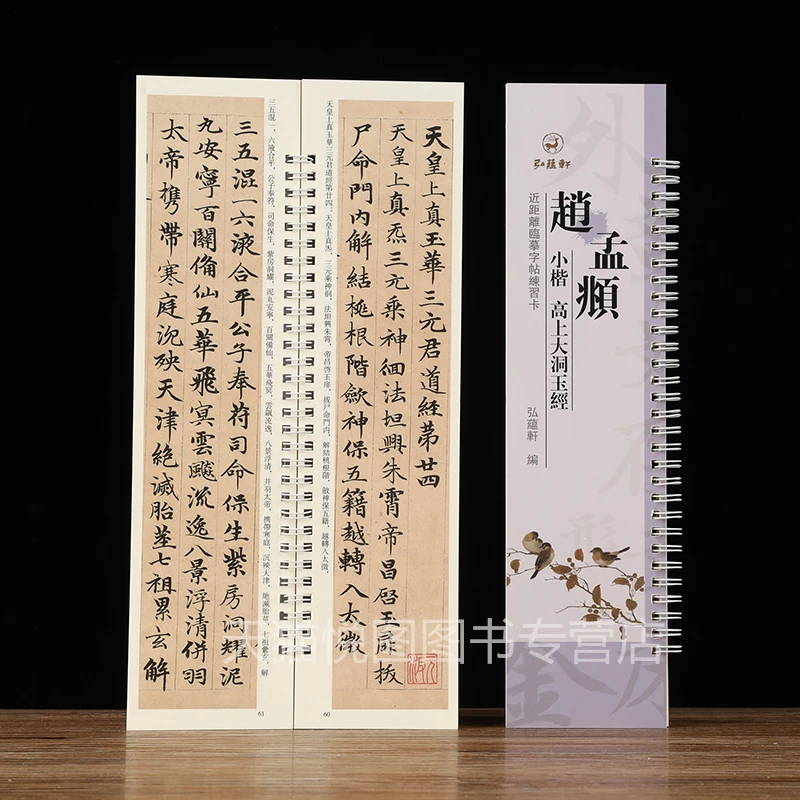 天皇上真玉華三元君道經第廿四
天皇上真炁三元乘神徊法坦興朱霄帝昌啓玉扉拔
尸命門內解結桃根階歛神保五籍越轉入太微
天皇上真玉華三元君道經第廿四：天皇上真炁，三元乘神徊，法坦興朱霄，帝昌啓玉扉，拔尸命門内，解結桃根階，斂神保五籍，越轉入太微。
60
三五混一六液合平公子奉符司命保生紫房洞耀泥
丸安寧百關俻仙五華飛冥雲飈流逸八景浮清併羽
太帝携帶寒庭沉殃天津絶滅胎莖七祖累玄解
三五混一，六液合平，公子奉符，司命保生，紫房洞耀，泥丸安寧，百關備仙，五華飛冥，雲飆流逸，八景浮清，并羽太帝，携帶寒庭，沉殃天津，絶滅胎莖，七祖纍玄，解
61
弘蘊軒
趙孟頫
小楷 高上大洞玉經
近距離臨摹字帖練習卡
弘蘊軒 編
天猫悦图图书专营店